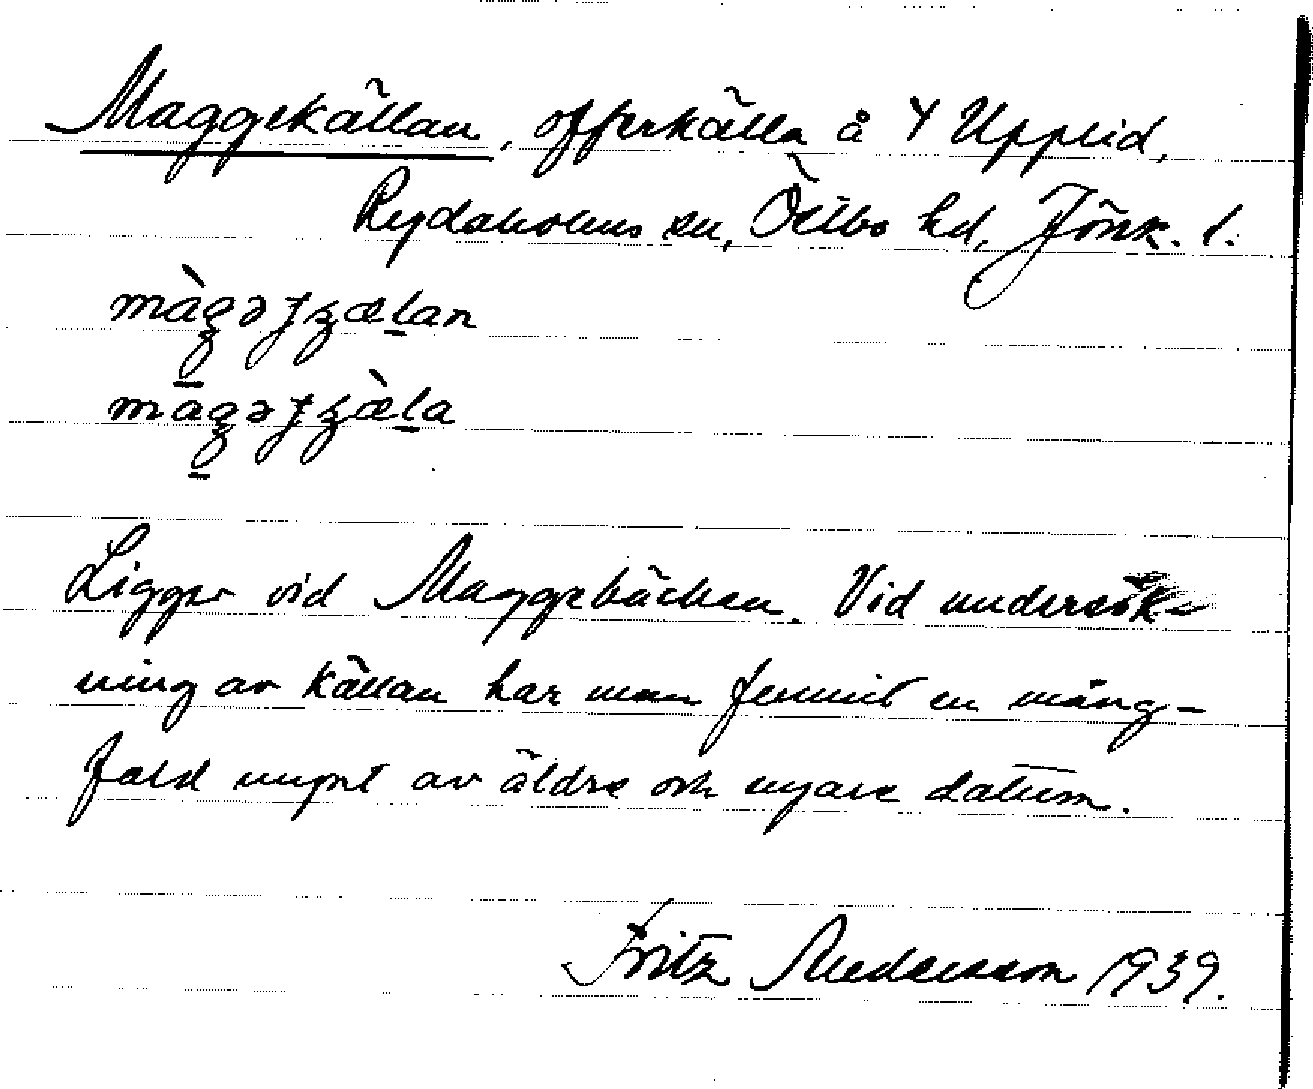 Maggekällan, offerkälla å Y Upplid,
Rydaholms sn, Östbo hd, Jönk. l.
Ligger vid Maggebäcken. Vid undersök-
ning av källan har man funnit en mång-
fald mynt av äldre och nyare datum.
Fritz Andersson 1939.